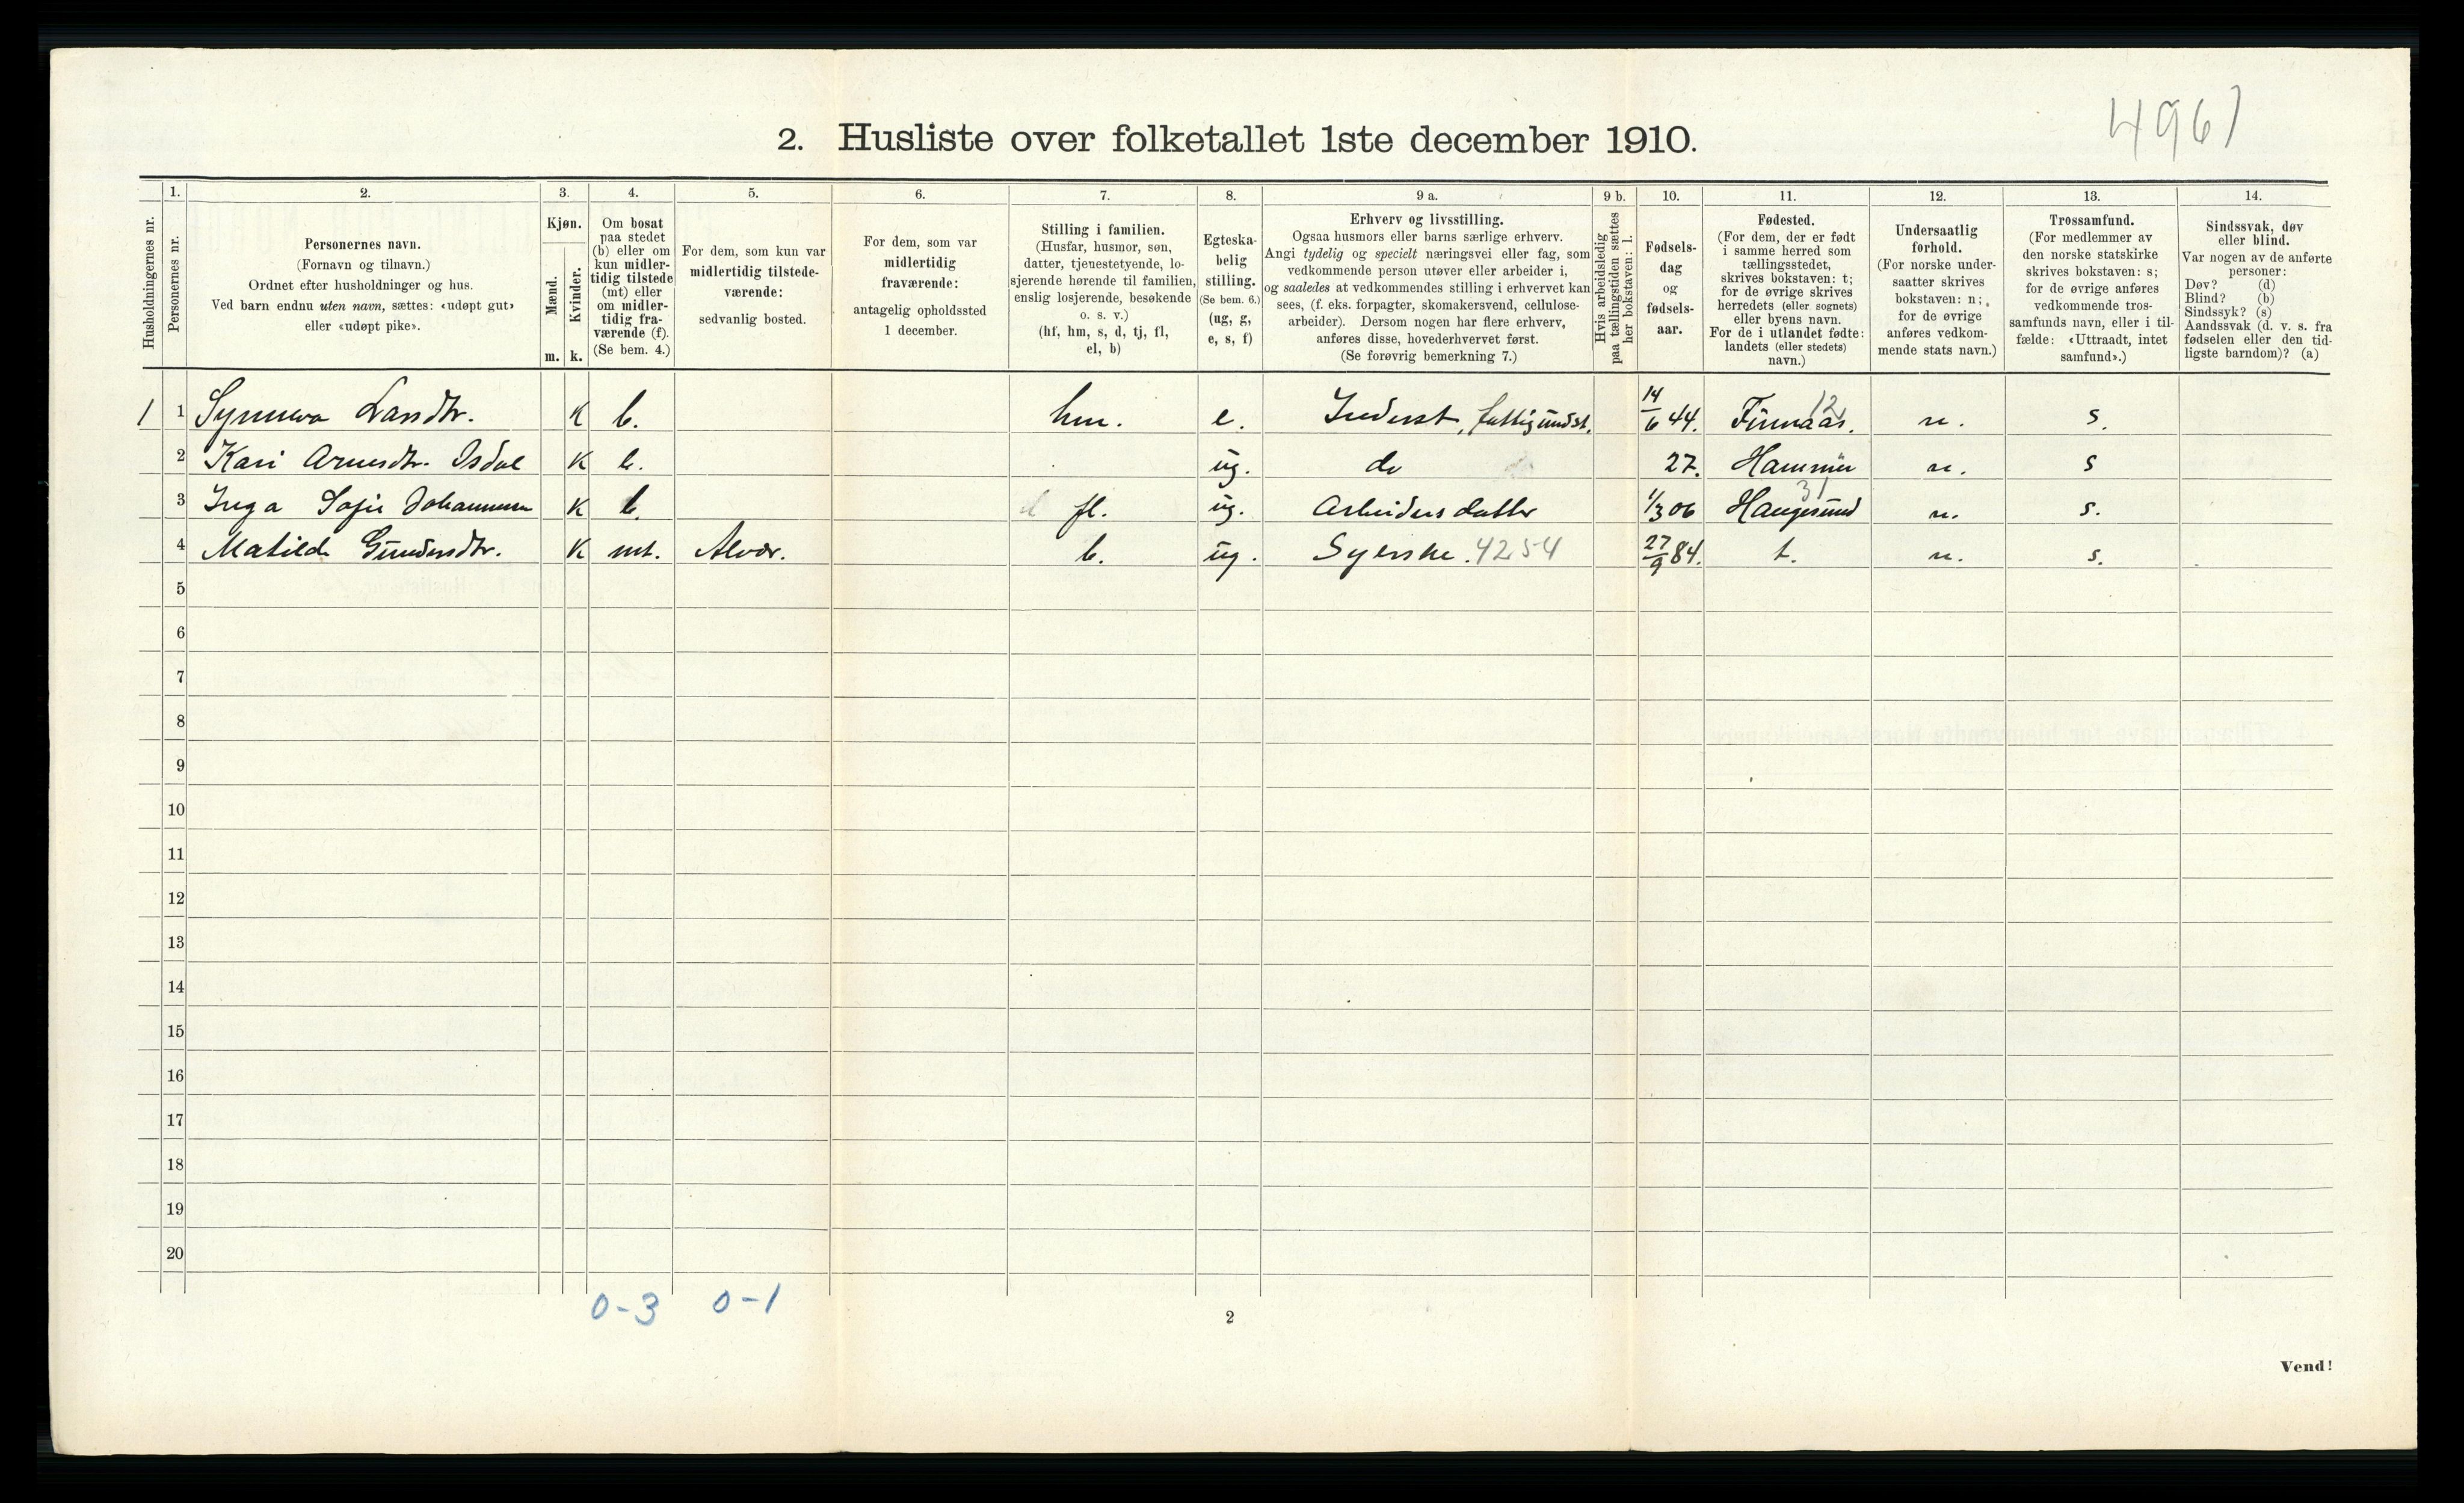 4961
2. Husliste over folketallet 1ste december 1910.
Husholdningernes nr.
1.
Personernes nr.
2.
Personernes navn.
(Fornavn og tilnavn.)
Ordnet efter husholdninger og hus.
Ved barn endnu uten navn, sættes: «udøpt gut»
eller «udøpt pike».
3.
Kjøn.
Mænd.
Kvinder.
m. k.
4.
Om bosat
paa stedet
(b) eller om
kun midler-
tidig tilstede
(mt) eller
om midler-
tidig fra-
værende (f).
(Se bem. 4.)
5.
For dem, som kun var
midlertidig tilstede-
værende:
sedvanlig bosted.
6.
For dem, som var
midlertidig
fraværende:
antagelig opholdssted
1 december.
7.
Stilling i familien.
(Husfar, husmor, søn,
datter, tjenestetyende, lo-
sjerende hørende til familien,
enslig losjerende, besøkende
o. s. v.)
(hf, hm, s, d, tj, fl,
el, b)
8.
Egteska-
belig
stilling.
(Se bem. 6.)
(ug, g,
e, s, f)
9 a.
Erhverv og livsstilling.
Ogsaa husmors eller barns særlige erhverv.
Angi tydelig og specielt næringsvei eller fag, som
vedkommende person utøver eller arbeider i,
og saaledes at vedkommendes stilling i erhvervet kan
sees, (f. eks. forpagter, skomakersvend, cellulose-
arbeider). Dersom nogen har flere erhverv,
anføres disse, hovederhvervet først.
(Se forøvrig bemerkning 7.)
9 b.
Hvis arbeidsledig
paa tællingstiden sættes
her bokstaven: l.
10.
Fødsels-
dag
og
fødsels-
aar.
11.
Fødested.
(For dem, der er født
i samme herred som
tællingsstedet,
skrives bokstaven: t;
for de øvrige skrives
herredets (eller sognets)
eller byens navn.
For de i utlandet fødte:
landets (eller stedets)
navn.)
12.
Undersaatlig
forhold.
(For norske under-
saatter skrives
bokstaven: n;
for de øvrige
anføres vedkom-
mende stats navn.)
13.
Trossamfund.
(For medlemmer av
den norske statskirke
skrives bokstaven: s;
for de øvrige anføres
vedkommende tros-
samfunds navn, eller i til-
fælde: «Uttraadt, intet
samfund».)
14.
Sindssvak, døv
eller blind.
Var nogen av de anførte
personer:
Døv? (d)
Blind? (b)
Sindssyk? (s)
Aandssvak (d. v. s. fra
fødselen eller den tid-
ligste barndom)? (a)
1 1 Synneva Larsdtr. K b. hm. e. Inderst, fattigundst. 14/6 44. Finnaas. 12 n. s.
2 Kari Arnesdtr. Isdal K b. ug. do 27. Hammer n. s
3 Inga Sofie Johannesen K b. fl. ug. Arbeiders datter 1/3 06 Haugesund 31 n. s.
4 Matilde Gundersdtr. K mt. Alvær. b. ug. Syerske. 4254 27/9 84. t. n. s.
5
6
7
8
9
10
11
12
13
14
15
16
17
18
19
20
0-3 0-1
2
Vend!